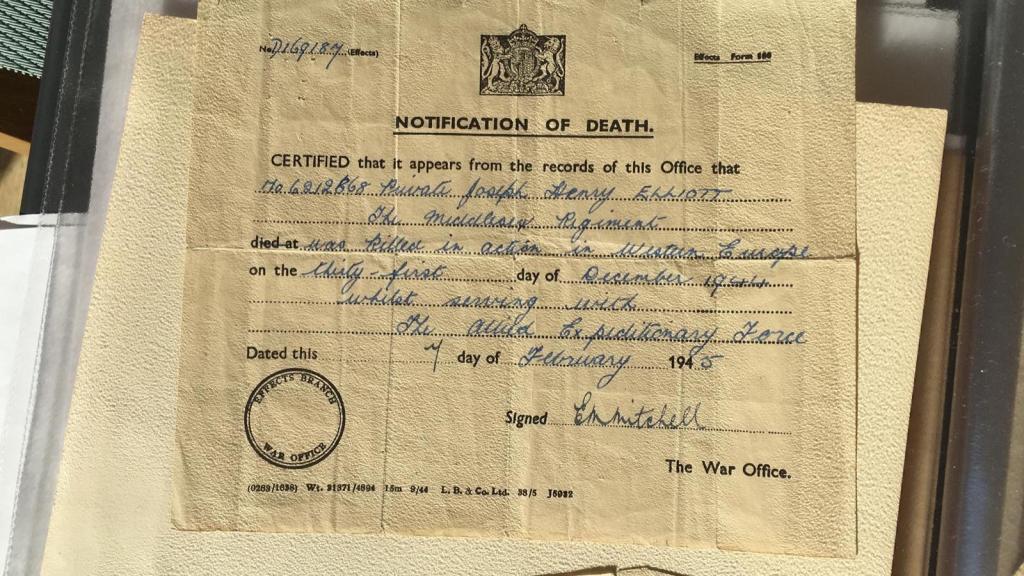 No D169187 (Effects)
Effects Form
NOTIFICATION OF DEATH.
CERTIFIED that it appears from the records of this Office that
No 6212868 Private Joseph Henry ELLIOTT
The Middlesex Regiment
died at was killed in action in Western Europe
on the thirty-first day of December 1944
whilst serving with
The Allied Expeditionary Force
Dated this 7 day of February 1945
EFFECTS BRANCH
WAR OFFICE
Signed EMMitchell
The War Office.
Wt. 31371/4694 15m 9/44 L. B. & Co. Ltd. 38/5